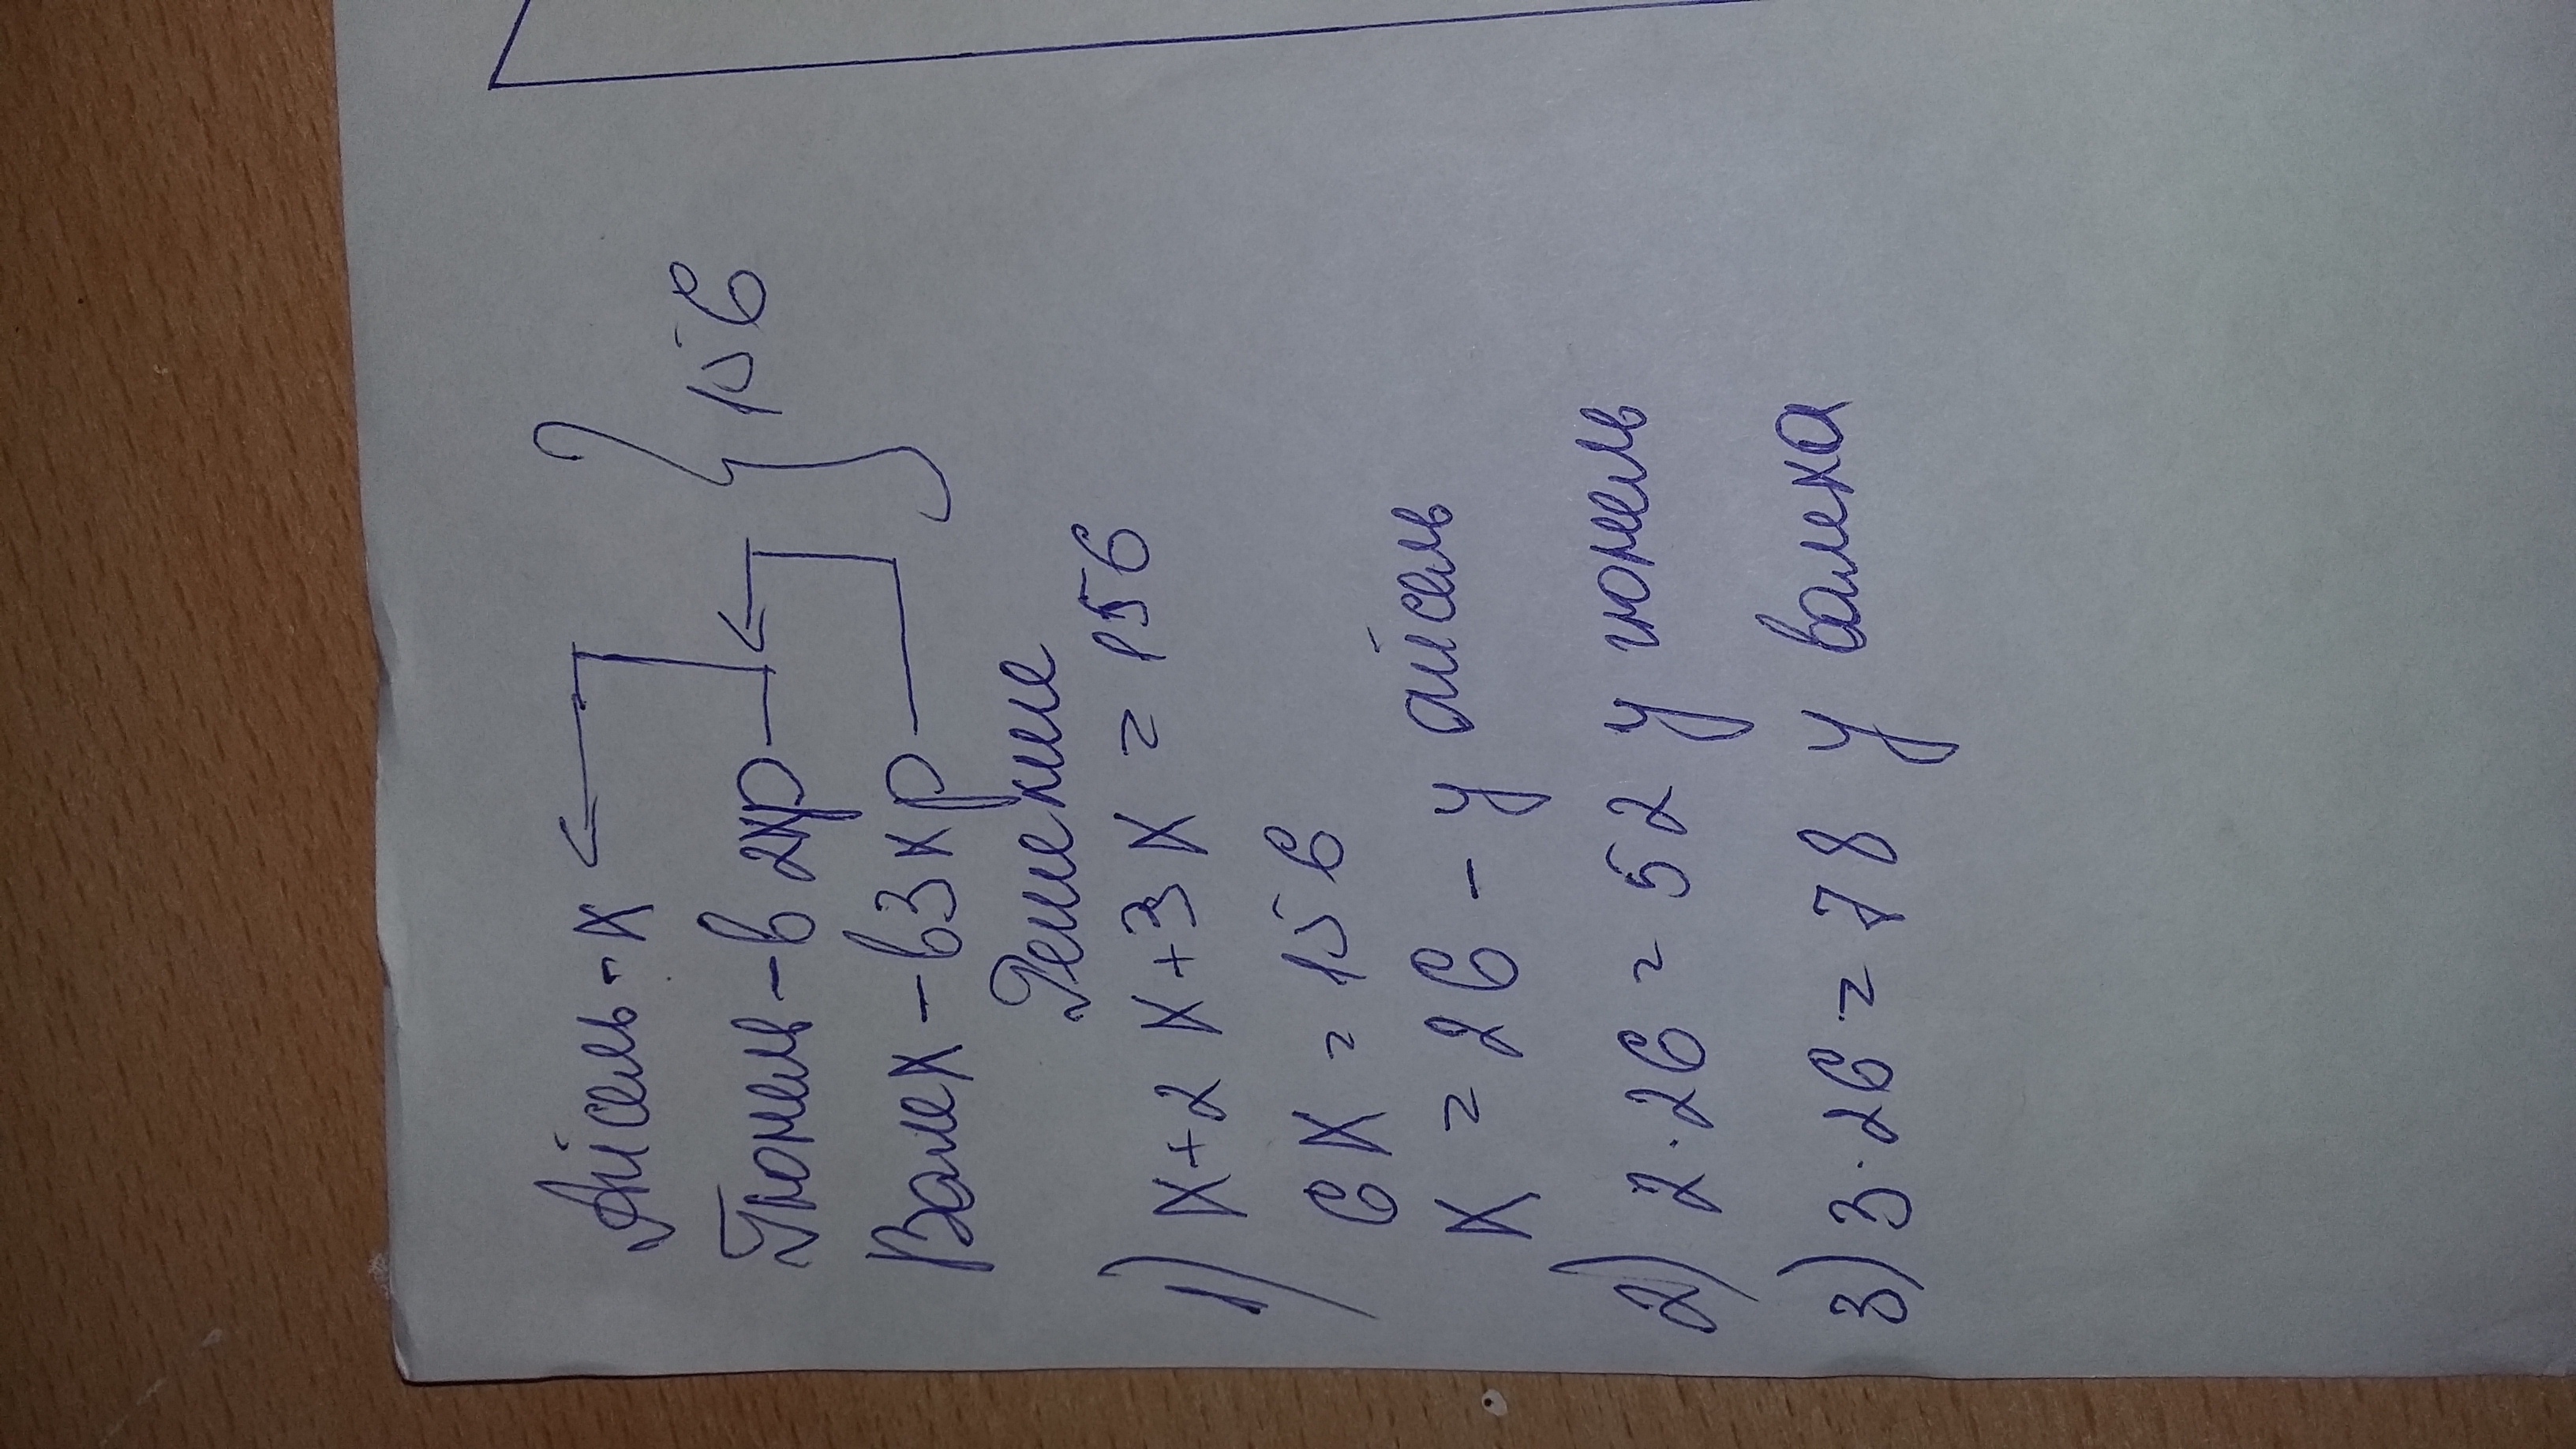 Айсель - x
Тюнель - в 2xр
Валех - в 3 x р
156
Решение
1) x + 2 x + 3 x = 156
6 x = 156
x = 26 - у айсель
2) 2 · 26 = 52 у тюнель
3) 3 · 26 = 78 у валеха